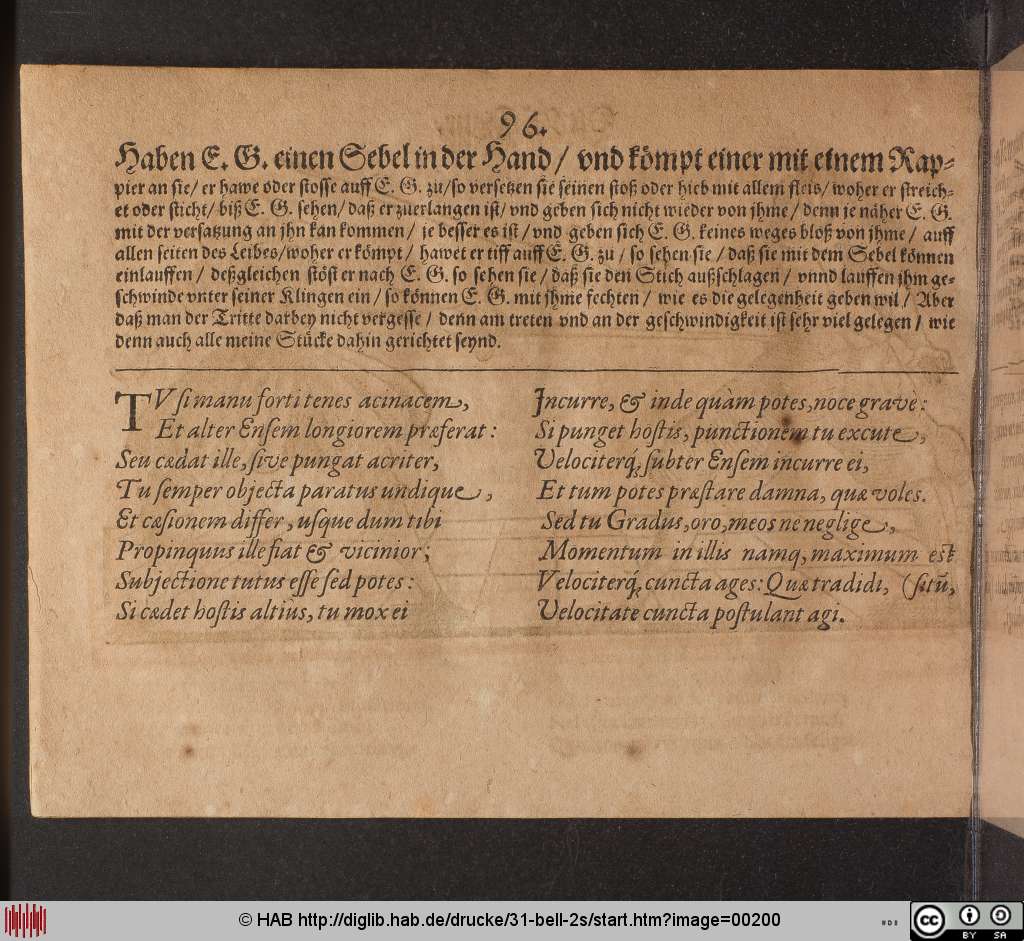 96.
Haben E. G. einen Sebel in der Hand / vnd kömpt einer mit einem Rap-
pier an sie / er hawe oder stosse auff E. G. zu / so versetzen sie seinen stoß oder hieb mit allem fleis / woher er streich-
et oder sticht / biß E. G. sehen / daß er zuerlangen ist / vnd geben sich nicht wieder von jhme / denn je näher E. G.
mit der versatzung an jhn kan kommen / je besser es ist / vnd geben sich E. G. keines weges bloß von jhme / auff
allen seiten des Leibes / woher er kömpt / hawet er tiff auff E. G. zu / so sehen sie / daß sie mit dem Sebel können
einlauffen / deßgleichen stöst er nach E. G. so sehen sie / daß sie den Stich außschlagen / vnnd lauffen jhm ge-
schwinde vnter seiner Klingen ein / so können E. G. mit jhme fechten / wie es die gelegenheit geben wil / Aber
daß man der Tritte darbey nicht vergesse / denn am treten vnd an der geschwindigkeit ist sehr viel gelegen / wie
denn auch alle meine Stücke dahin gerichtet seynd.
TV si manu forti tenes acinacem,
Et alter Ensem longiorem præferat:
Seu cædat ille, sive pungat acriter,
Tu semper objecta paratus undique,
Et cæsionem differ, usque dum tibi
Propinquus ille fiat & vicinior;
Subjectione tutus esse sed potes:
Si cædet hostis altiùs, tu mox ei
Incurre, & inde quàm potes, noce gravè:
Si punget hostis, punctionem tu excute,
Velociterq́; subter Ensem incurre ei,
Et tum potes præstare damna, quæ voles.
Sed tu Gradus, oro, meos ne neglige,
Momentum in illis namq, maximum est
Velociterq́; cuncta ages: Quæ tradidi, (situ̅,
Velocitate cuncta postulant agi.
© HAB http://diglib.hab.de/drucke/31-bell-2s/start.htm?image=00200
cc BY SA